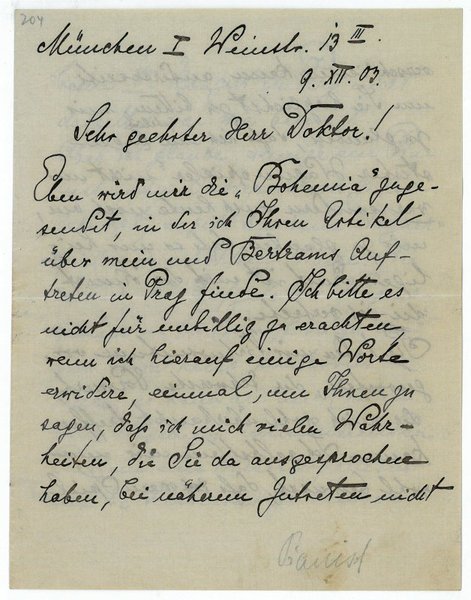 204
München I Weinstr. 13 III.
9. XII. 03.
Sehr geehrter Herr Doktor!
Eben wird mir die „Bohemia“ zuge-
sendet, in der ich Ihren Artikel
über mein und Bertrams Auf-
treten in Prag finde. Ich bitte es
nicht für unbillig zu erachten,
wenn ich hierauf einige Worte
erwidere, einmal, um Ihnen zu
sagen, daß ich mich vielen Wahr-
heiten, die Sie da ausgesprochen
haben, bei näherem Zutreten nicht